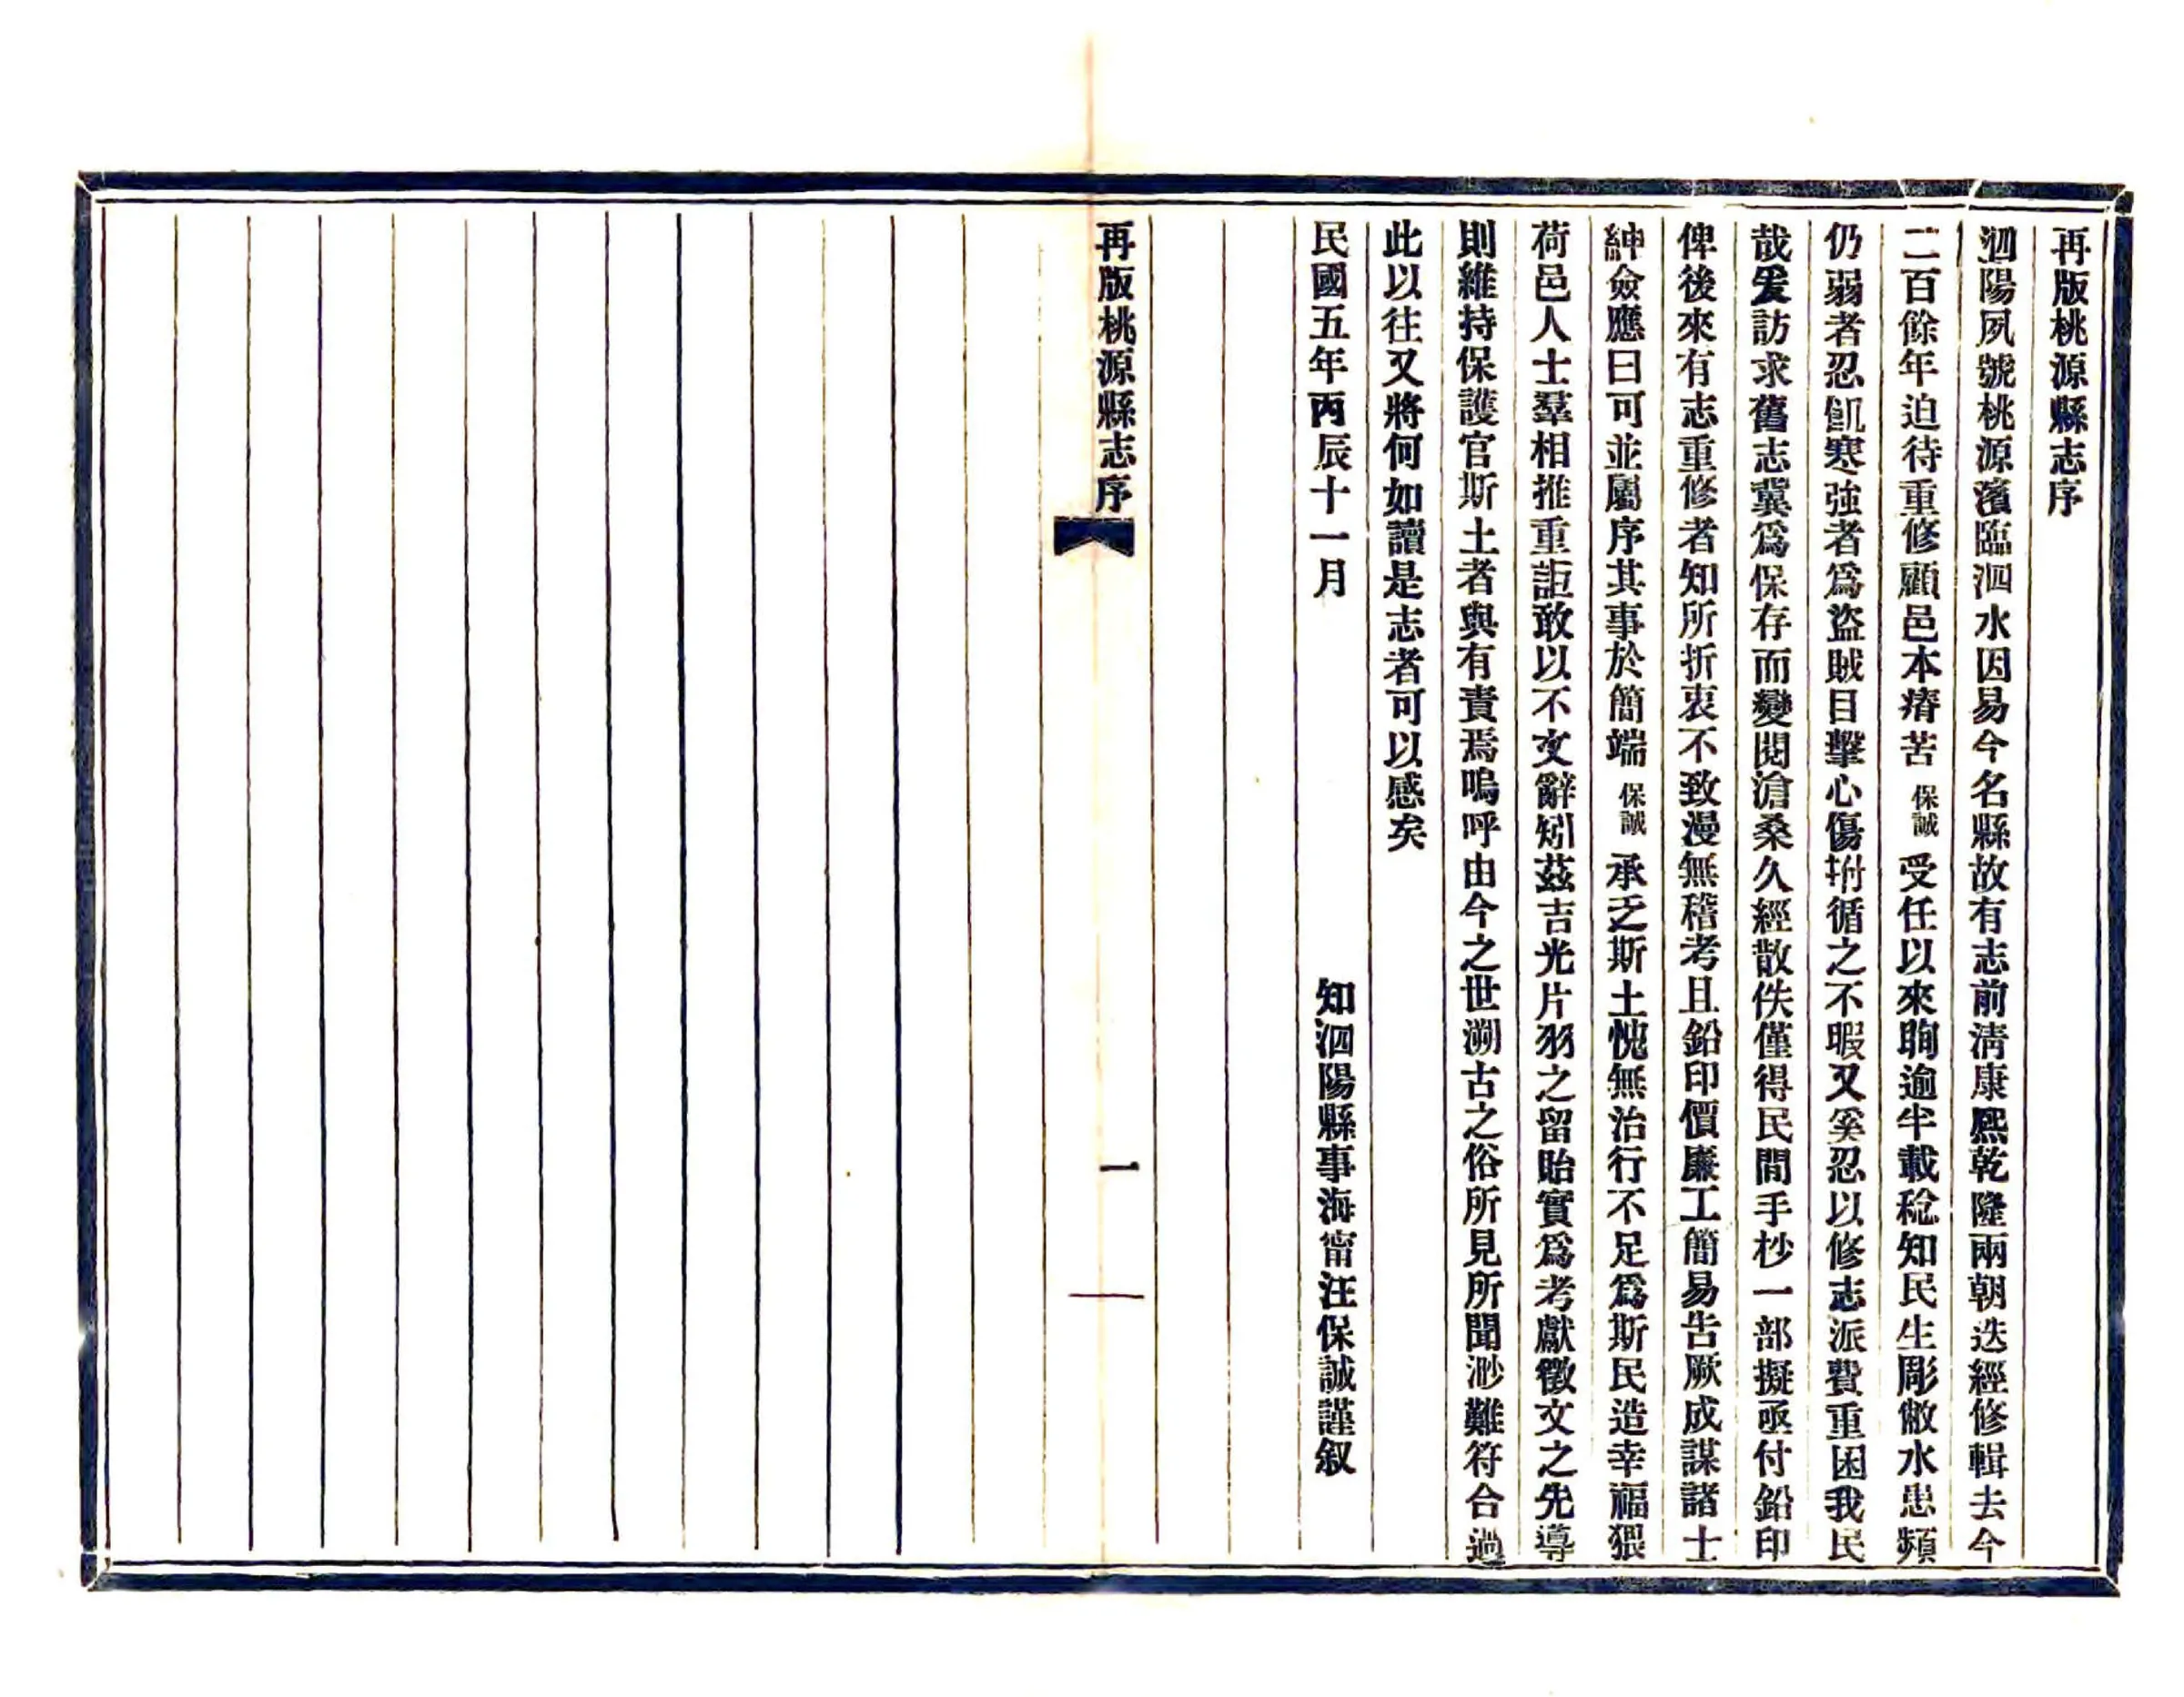 再版桃源縣志序
泗陽夙號桃源濱臨泗水因易今名縣故有志前淸康熙乾隆兩朝迭經修輯去今
二百餘年迫待重修顧邑本瘠苦保誠受任以來眴逾半載稔知民生彫敝水患頻
仍弱者忍飢寒強者爲盜賊目擊心傷拊循之不暇又奚忍以修志派費重困我民
哉爰訪求舊志冀爲保存而變閱滄桑久經散佚僅得民間手抄一部擬亟付鉛印
俾後來有志重修者知所折衷不致漫無稽考且鉛印價廉工簡易告厥成謀諸士
紳僉應曰可並屬序其事於簡端保誠承乏斯土愧無治行不足爲斯民造幸福猥
荷邑人士羣相推重詎敢以不文辭矧茲吉光片羽之留貽實爲考獻徵文之先導
則維持保護官斯土者與有責焉嗚呼由今之世溯古之俗所見所聞渺難符合過
此以往又將何如讀是志者可以感矣
民國五年丙辰十一月 知泗陽縣事海甯汪保誠謹叙
再版桃源縣志序 一